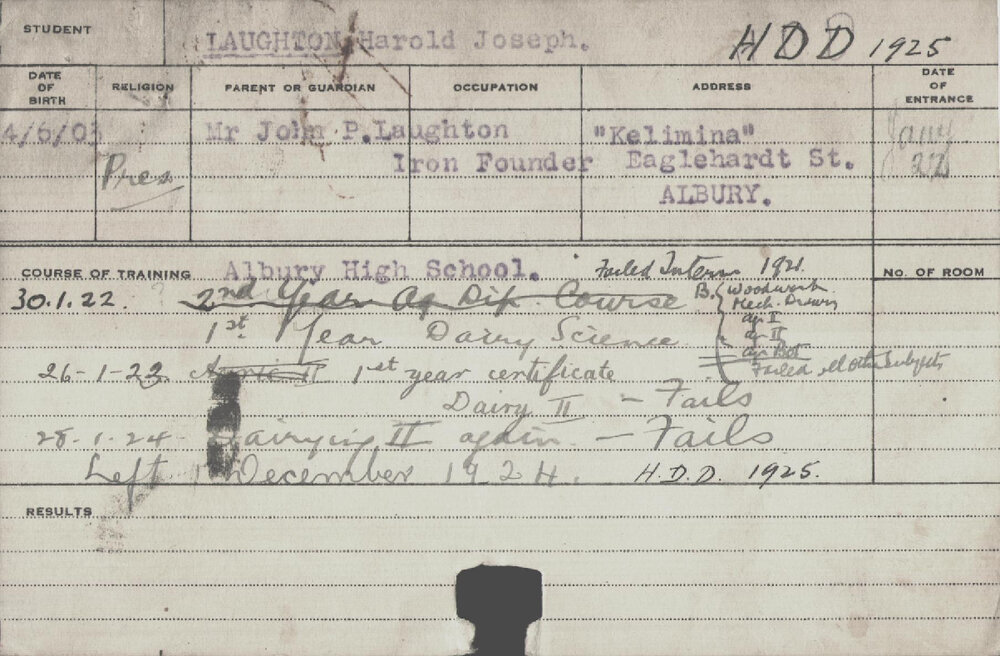 STUDENT LAUGHTON, Harold Joseph. H D D 1925
DATE OF BIRTH RELIGION PARENT OR GUARDIAN OCCUPATION ADDRESS DATE OF ENTRANCE
4/6/03 Mr John P.Laughton "Kelimina"
Pres Iron Founder Eaglehardt St. 22
ALBURY.
COURSE OF TRAINING Albury High School. Failed Interm 1921. No. OF ROOM
30.1.22. 2nd Year Ag Dip. Course B. Woodwork
Mech. Drawg
1st Year Dairy Science Ag I
Ag II
Ag Bot
26-1-23. 1st year certificate Failed all other Subjects
Dairy II - Fails
28-1-24- Dairying II again - Fails
Left December 1924. H.D.D. 1925.
RESULTS